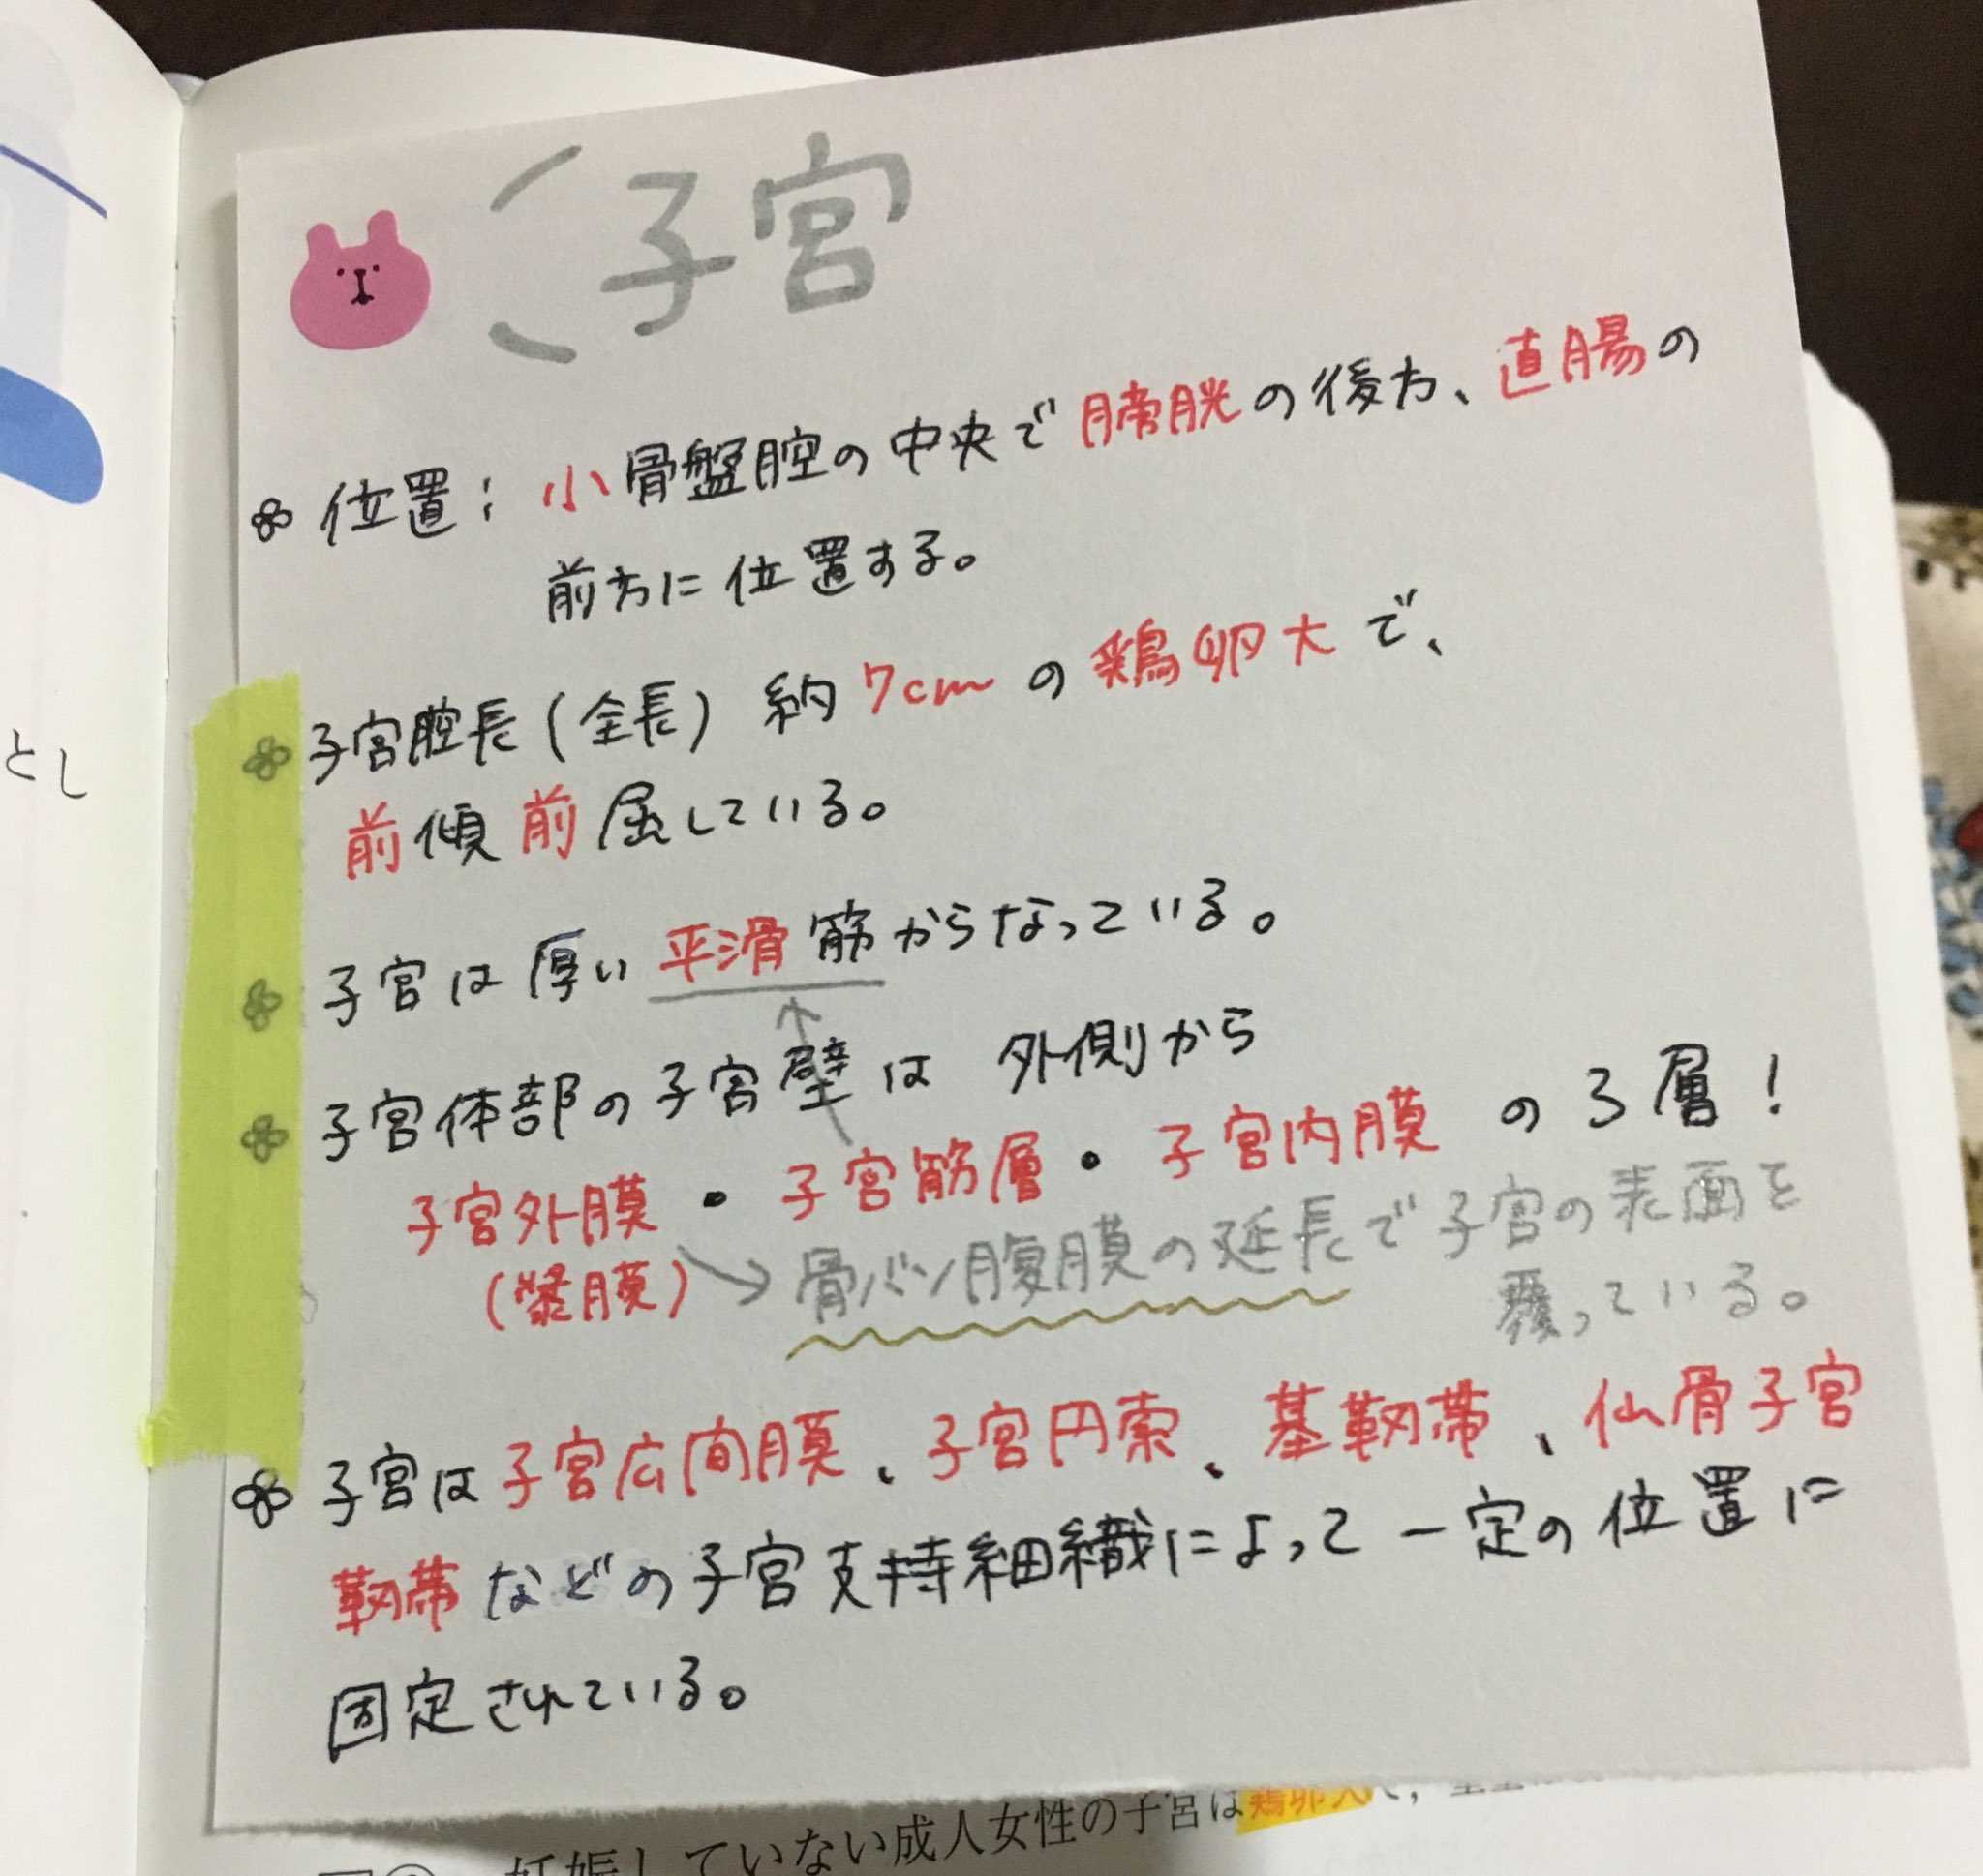 子宮
位置: 小骨盤腔の中央で膀胱の後方、直腸の
前方に位置する。
とし
子宮腔長(全長) 約7cmの鶏卵大で、
前傾前屈している。
子宮は厚い平滑筋からなっている。
子宮体部の子宮壁は 外側から
子宮外膜・子宮筋層・子宮内膜 の3層!
(漿膜)→骨バン腹膜の延長で子宮の表面を
覆っている。
子宮は子宮広間膜、子宮円索、基靭帯、仙骨子宮
靭帯などの子宮支持組織によって一定の位置に
固定されている。
妊娠していない成人女性の子宮は鶏卵大で,